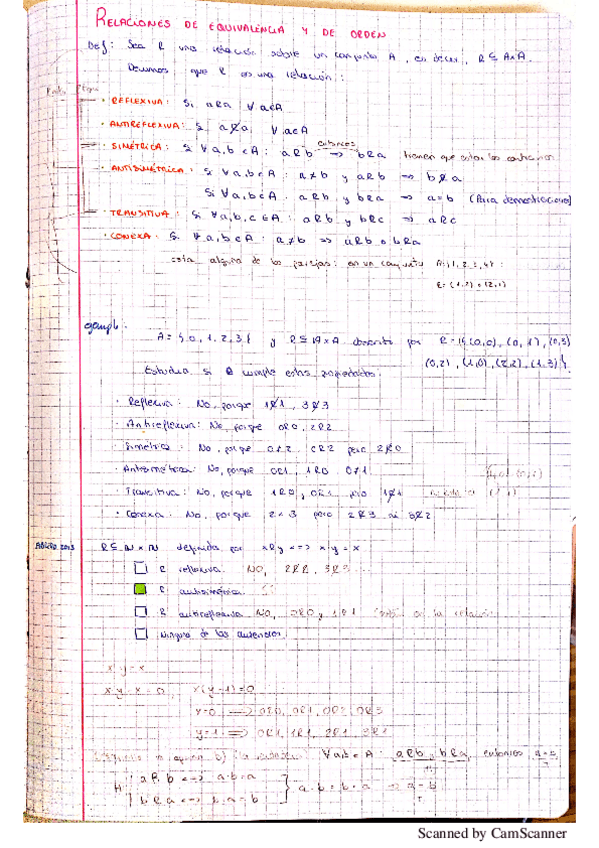 RELACIONES DE EQUIVALENCIA Y DE ORDEN
Def: Sea R una relación sobre un conjunto A, es decir, R ⊆ A×A.
Decimos que R es una relación:
· REFLEXIVA: Si aRa ∀a∈A
· ANTIREFLEXIVA: Si a R̸ a, ∀a∈A
· SIMÉTRICA: Si ∀a,b∈A: aRb ⇒ bRa tienen que estar los contrarios
entonces
· ANTISIMÉTRICA: Si ∀a,b∈A: a≠b y aRb ⇒ b R̸ a
Si ∀a,b∈A: aRb y bRa ⇒ a=b (Para demostraciones)
· TRANSITIVA: Si ∀a,b,c∈A: aRb y bRc ⇒ aRc
· CONEXA: Si ∀a,b∈A: a≠b ⇒ aRb o bRa
esta alguna de las parejas: en un conjunto
ejemplo:
A={0,1,2,3} y R⊆A×A descrita por R={(0,0),(0,1),(0,3)
(0,2),(1,0),(2,2),(1,3)}.
Estudia si R cumple estas propiedades:
· Reflexiva: No, porque 1R̸1, 3R̸3
· Antireflexiva: No, porque 0R0, 2R2
· Simétrica: No, porque 0≠2, 0R2 pero 2R̸0
· Antisimétrica: No, porque 0R1, 1R0 0≠1
· Transitiva: No, porque 1R0, 0R1 pero 1R̸1
· Conexa: No, porque 2≠3 pero 2R̸3 ni 3R̸2
R⊆ℕ×ℕ definida por xRy <=> x·y=x
R reflexiva. NO, 2R̸2, 3R̸3
R antisimétrica
R antireflexiva No, 0R0 y 1R1 en la relación
Ninguna de las anteriores.
x·y=x
x·y-x=0, x(y-1)=0
y=0 ⇒ 0R0, 0R1, 0R2, 0R3
y=1 ⇒ 0R1, 1R1, 2R1, 3R1
∀a,b∈A: aRb y bRa, entonces a=b
H { aRb <=> a·b=a
bRa <=> b·a=b } a·b=b·a ⇒ a=b
Scanned by CamScanner